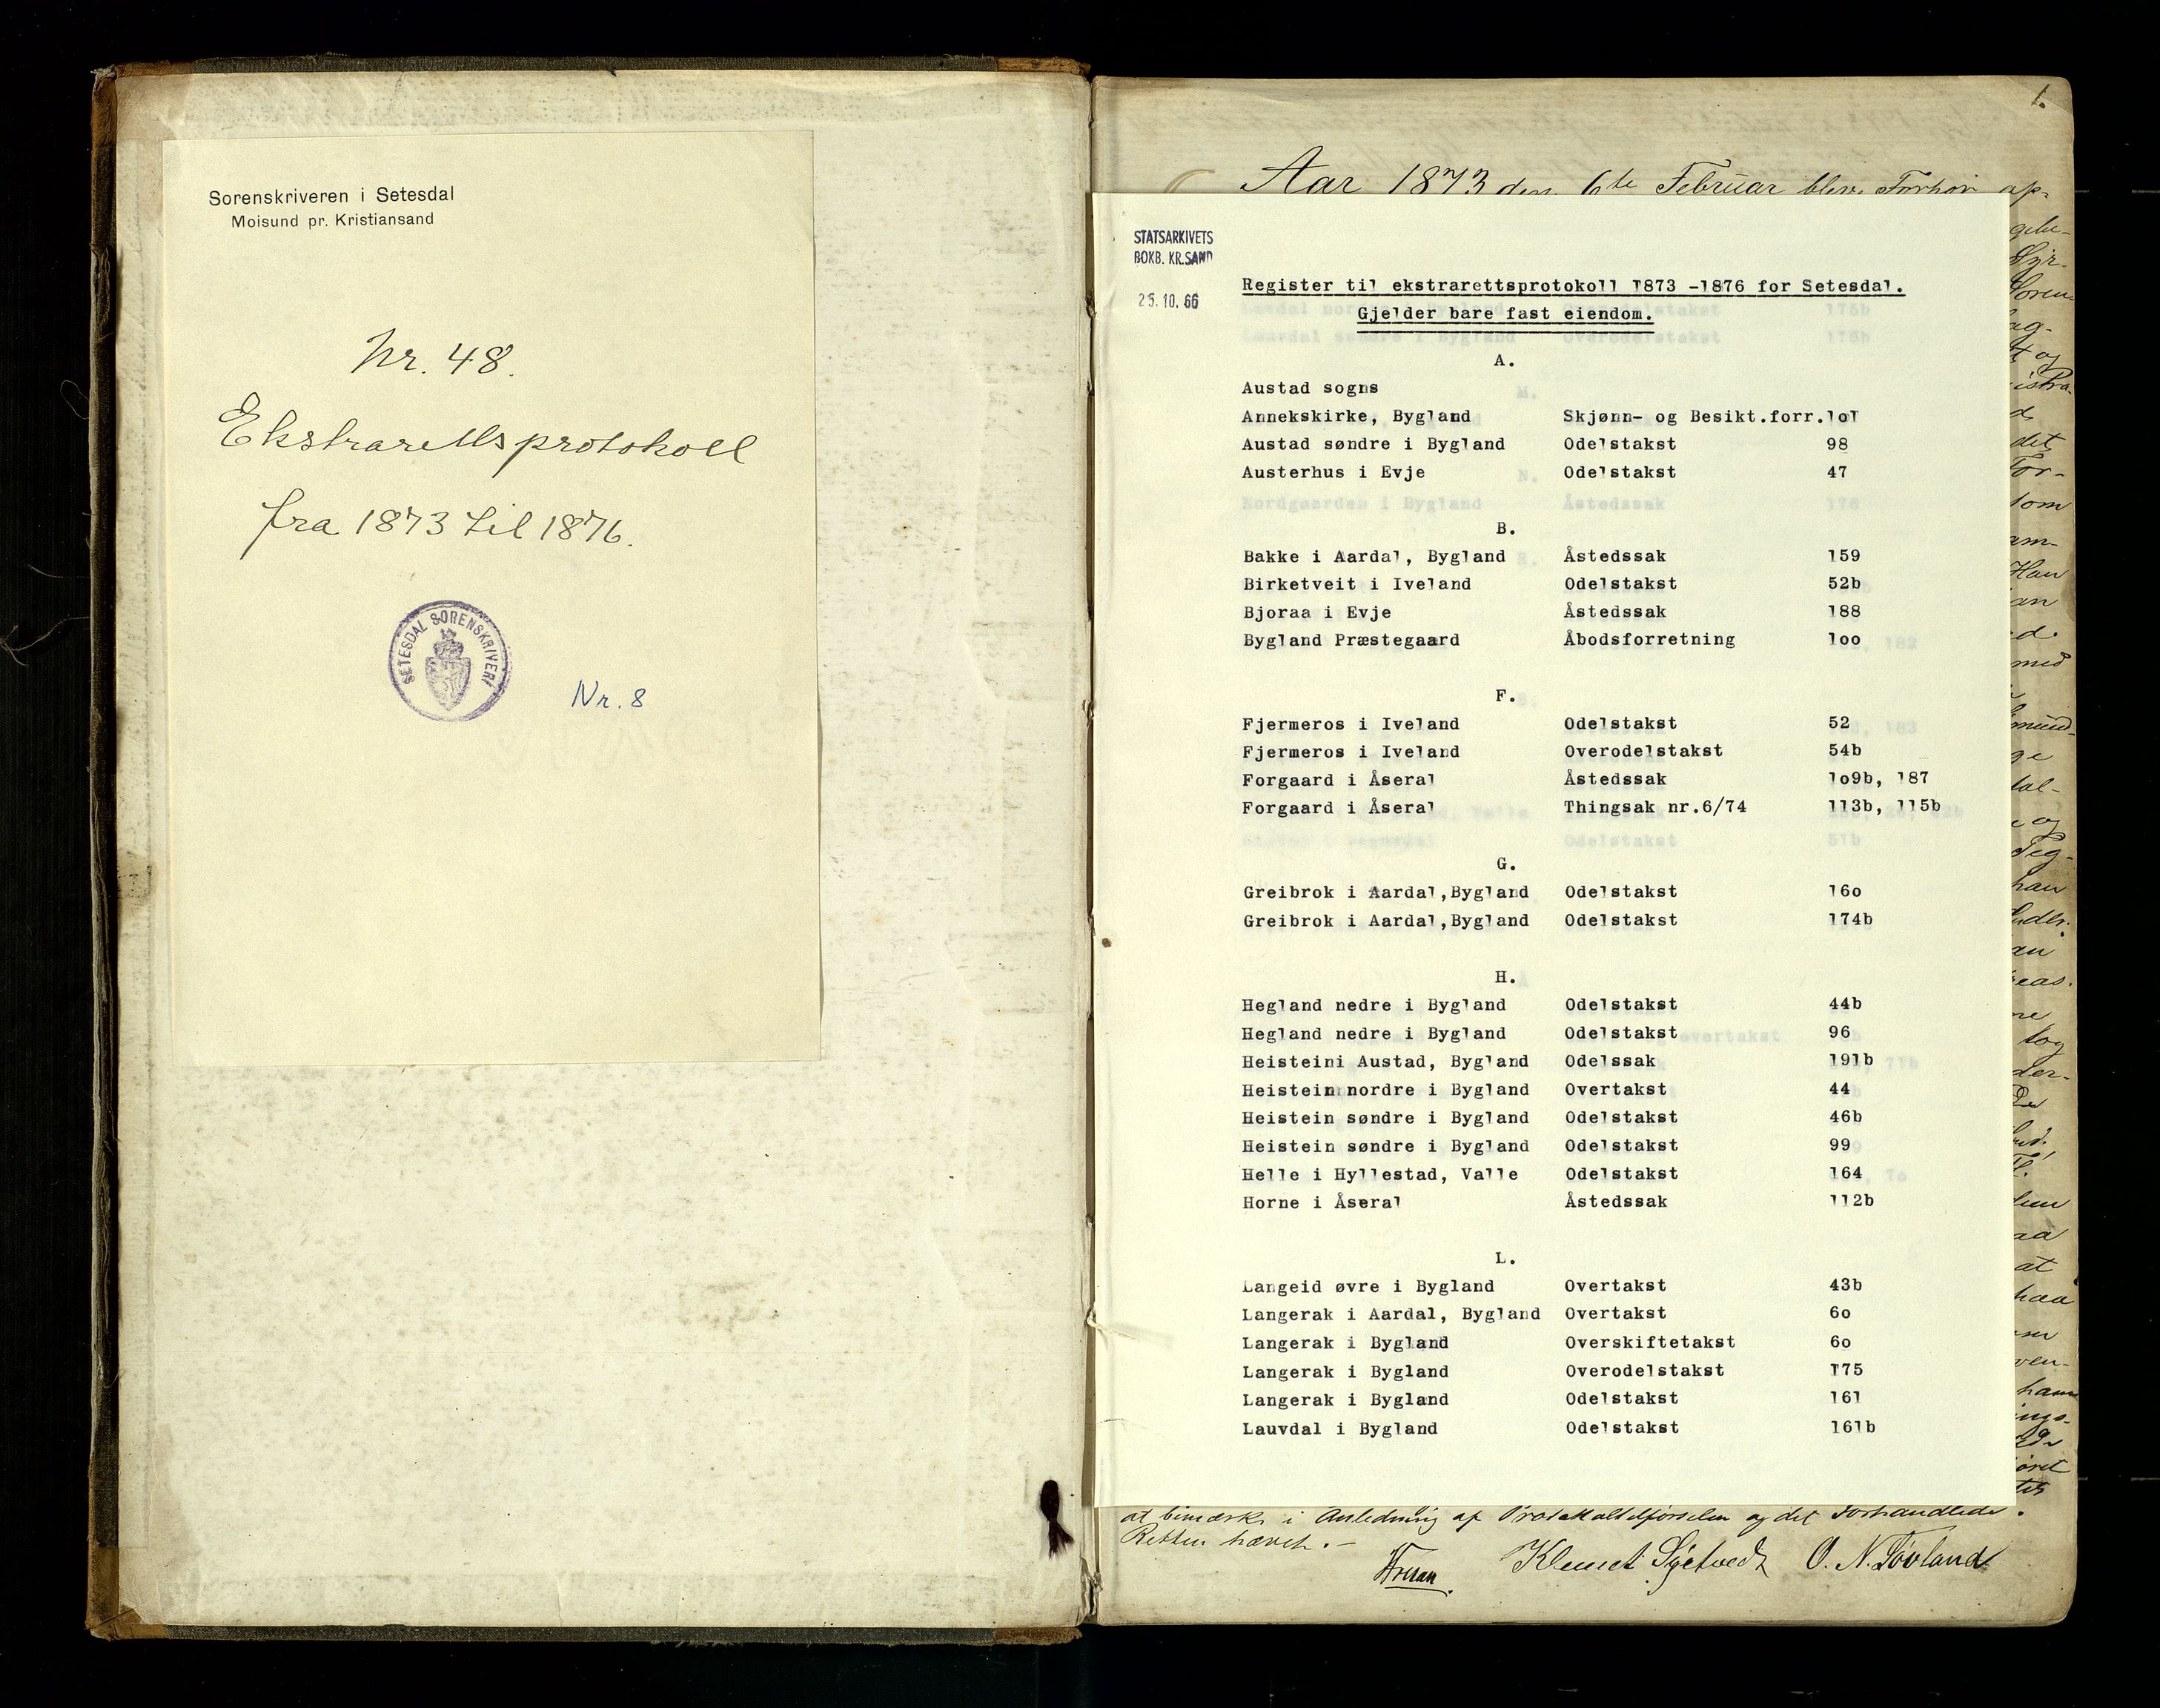 Sorenskriveren i Setesdal
Moisund pr. Kristiansand
Nr. 48.
Ekstrarettsprotokoll
fra 1873 til 1876.
SETESDAL SORENSKRIVERI
Nr. 8
1.
Aar 1873 den 6te Februar blev Forhør op-
STATSARKIVETS
BOKB. KR.SAND
25.10.66
Register til ekstrarettsprotokoll 1873 -1876 for Setesdal.
Gjelder bare fast eiendom.
A.
Austad sogns
Annekskirke, Bygland Skjønn- og Besikt.forr.lol
Austad søndre i Bygland Odelstakst 98
Austerhus i Evje Odelstakst 47
B.
Bakke i Aardal, Bygland Åstedssak 159
Birketveit i Iveland Odelstakst 52b
Bjoraa i Evje Åstedssak 188
Bygland Præstegaard Åbodsforretning loo
F.
Fjermeros i Iveland Odelstakst 52
Fjermeros i Iveland Overodelstakst 54b
Forgaard i Åseral Åstedssak lo9b, 187
Forgaard i Åseral Thingsak nr.6/74 113b, 115b
G.
Greibrok i Aardal,Bygland Odelstakst 16o
Greibrok i Aardal,Bygland Odelstakst 174b
H.
Hegland nedre i Bygland Odelstakst 44b
Hegland nedre i Bygland Odelstakst 96
Heisteini Austad, Bygland Odelssak 191b
Heistein nordre i Bygland Overtakst 44
Heistein søndre i Bygland Odelstakst 46b
Heistein søndre i Bygland Odelstakst 99
Helle i Hyllestad, Valle Odelstakst 164
Horne i Åseral Åstedssak 112b
L.
Langeid øvre i Bygland Overtakst 43b
Langerak i Aardal, Bygland Overtakst 6o
Langerak i Bygland Overskiftetakst 6o
Langerak i Bygland Overodelstakst 175
Langerak i Bygland Odelstakst 161
Lauvdal i Bygland Odelstakst 161b
at bemærke i Anledning af Protokoltilførselen og det Forhandlede.
Retten hævet. -
Klemet O. N. Tovland